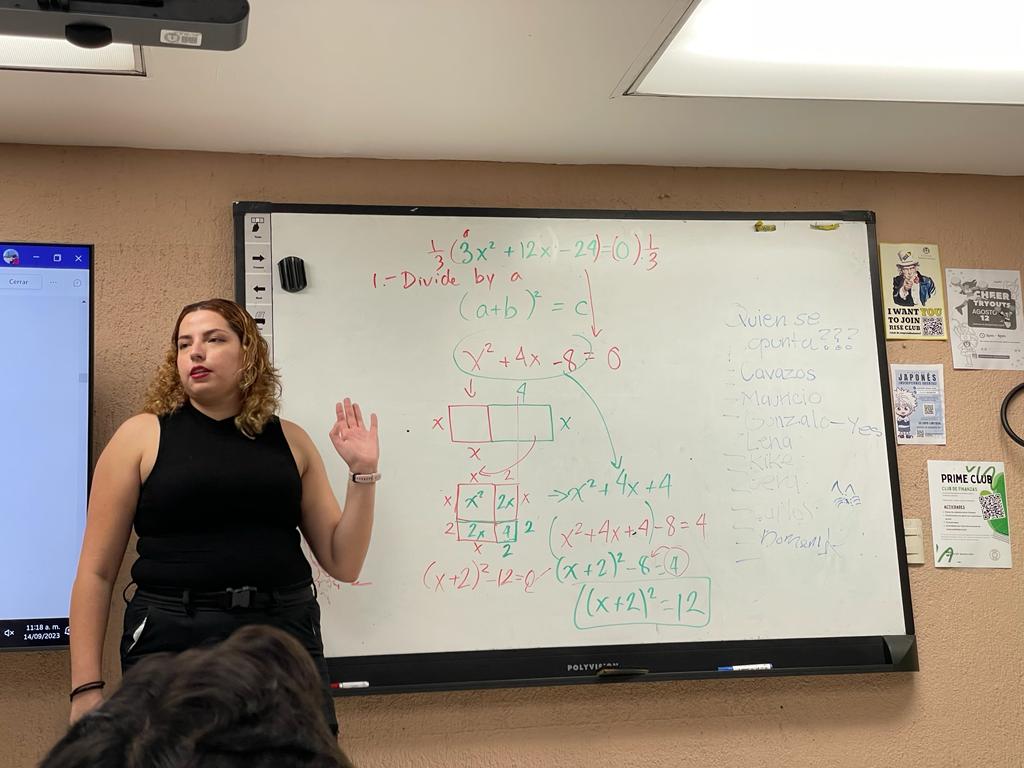 Cerrar
11:18 a. m.
14/09/2023
1/3 (3x² + 12x - 24) = (0) · 1/3
1.- Divide by a
(a+b)² = c
x² + 4x - 8 = 0
4
x x
x
x 2
x x² 2x x
2 2x 4 2
x 2
→ x² + 4x + 4
(x² + 4x + 4) - 8 = 4
(x+2)² - 8 = 4
(x+2)² - 12 = 0
(x+2)² = 12
Quien se
apunta???
- Cavazos
- Mauricio
- Gonzalo - Yes
- Lena
- Kike
POLYVISION
I WANT YOU
TO JOIN
RISE CLUB
CHEER
TRYOUTS
AGOSTO
12
JAPONÉS
PRIME CLUB
CLUB DE FINANZAS
ACTIVIDADES